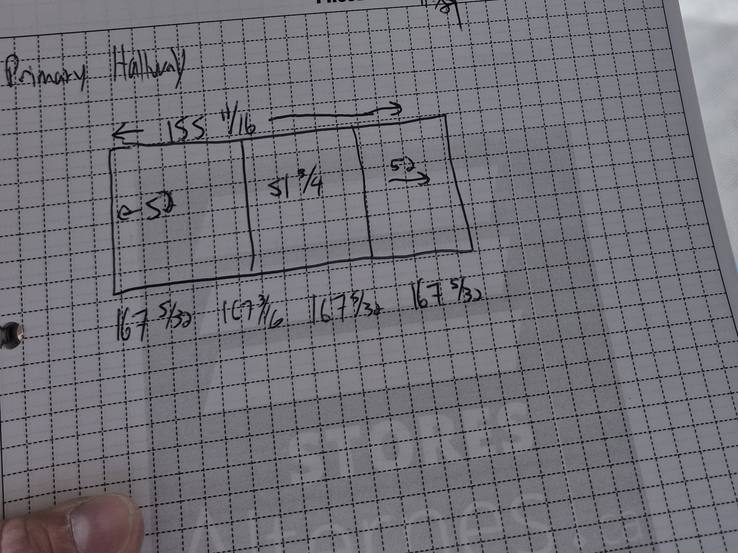 Primary Hallway
← 155 11/16 →
←52 51 3/4 52 →
167 5/32 167 3/16 167 5/32 167 5/32
STORES